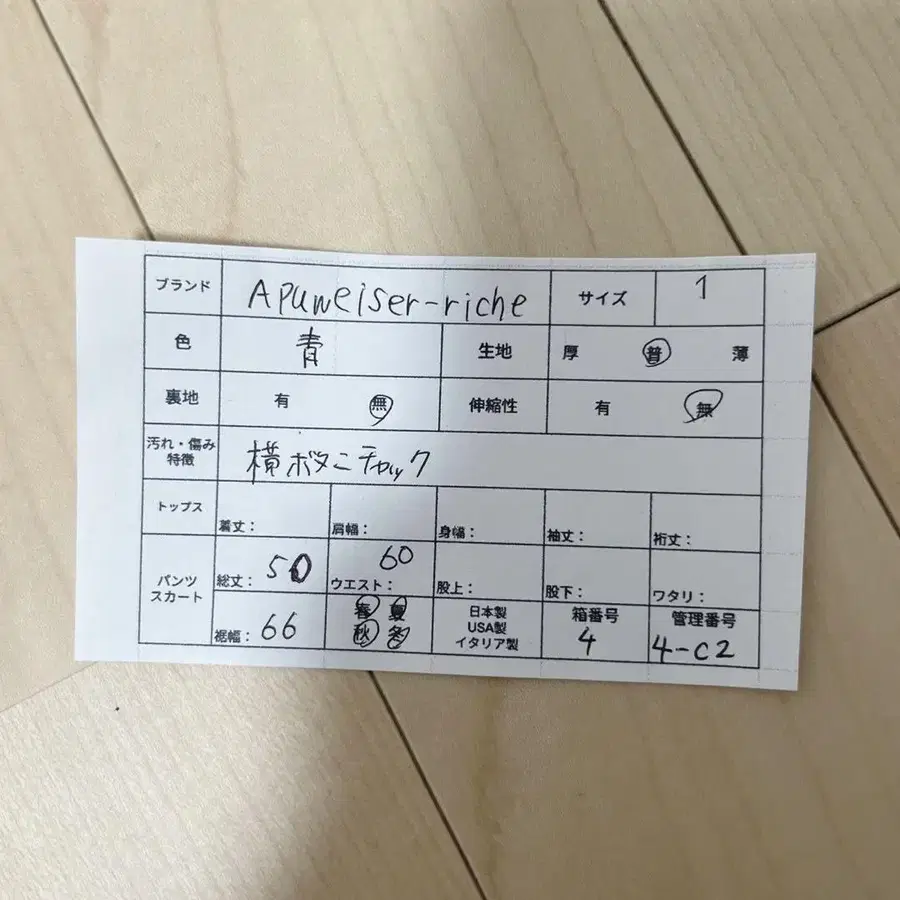 ブランド Apuweiser-riche サイズ 1
色 青 生地 厚 普 薄
裏地 有 無 伸縮性 有 無
汚れ・傷み
特徴 横ボタンチャック
トップス 着丈: 肩幅: 身幅: 袖丈: 裄丈:
パンツ
スカート 総丈: 50 ウエスト: 60 股上: 股下: ワタリ:
裾幅: 66 春 夏 秋 冬 日本製 USA製 イタリア製 箱番号 4 管理番号 4-C2